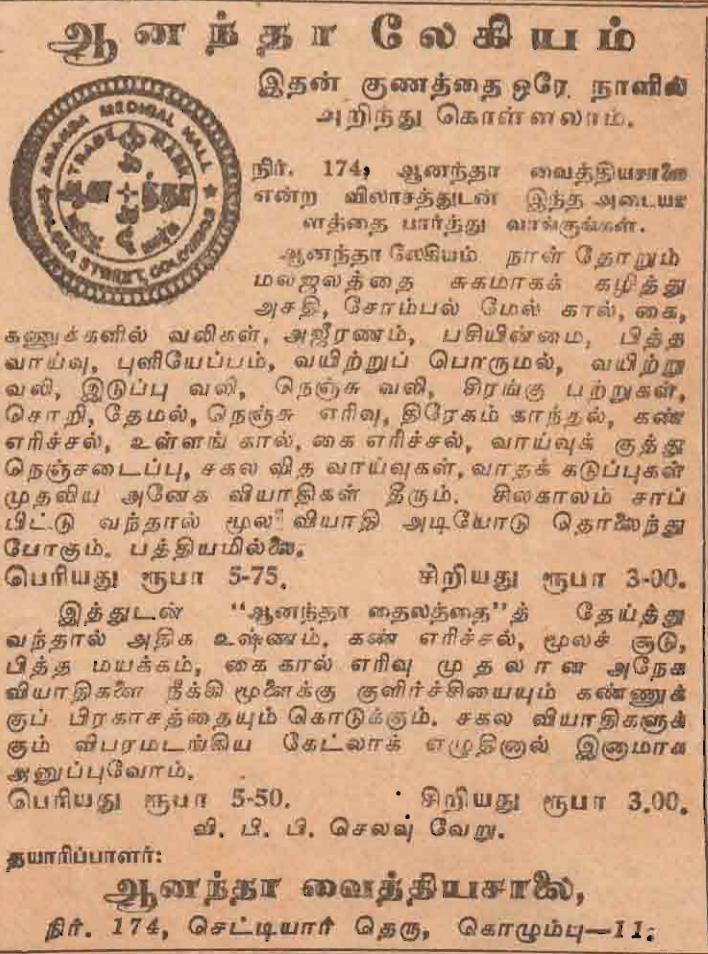 ஆனந்தா லேகியம்
இதன் குணத்தை ஒரே நாளில்
அறிந்து கொள்ளலாம்.
ANANDA MEDICAL HALL
TRADE MARK
ஆனந்தா
STREET, COLOMBO
நிர். 174, ஆனந்தா வைத்தியசாலை
என்ற விலாசத்துடன் இந்த அடையா
ளத்தை பார்த்து வாங்குங்கள்.
ஆனந்தா லேகியம் நாள் தோறும்
மலஜலத்தை சுகமாகக் கழித்து
அசதி, சோம்பல் மேல் கால், கை,
கணுக்களில் வலிகள், அஜீரணம், பசியின்மை, பித்த
வாய்வு, புளியேப்பம், வயிற்றுப் பொருமல், வயிற்று
வலி, இடுப்பு வலி, நெஞ்சு வலி, சிரங்கு பற்றுகள்,
சொறி, தேமல், நெஞ்சு எரிவு, திரேகம் காந்தல், கண்
எரிச்சல், உள்ளங் கால், கை எரிச்சல், வாய்வுக் குத்து
நெஞ்சடைப்பு, சகல வித வாய்வுகள், வாதக் கடுப்புகள்
முதலிய அனேக வியாதிகள் தீரும். சிலகாலம் சாப்
பிட்டு வந்தால் மூல வியாதி அடியோடு தொலைந்து
போகும். பத்தியமில்லை.
பெரியது ரூபா 5-75. சிறியது ரூபா 3-00.
இத்துடன் "ஆனந்தா தைலத்தை"த் தேய்த்து
வந்தால் அதிக உஷ்ணம், கண் எரிச்சல், மூலச் சூடு,
பித்த மயக்கம், கை கால் எரிவு முதலான அநேக
வியாதிகளை நீக்கி மூளைக்கு குளிர்ச்சியையும் கண்ணுக்
குப் பிரகாசத்தையும் கொடுக்கும். சகல வியாதிகளுக்
கும் விபரமடங்கிய கேட்லாக் எழுதினால் இனாமாக
அனுப்புவோம்.
பெரியது ரூபா 5-50. சிறியது ரூபா 3.00.
வி. பி. பி. செலவு வேறு.
தயாரிப்பாளர்:
ஆனந்தா வைத்தியசாலை,
நிர். 174, செட்டியார் தெரு, கொழும்பு—11.